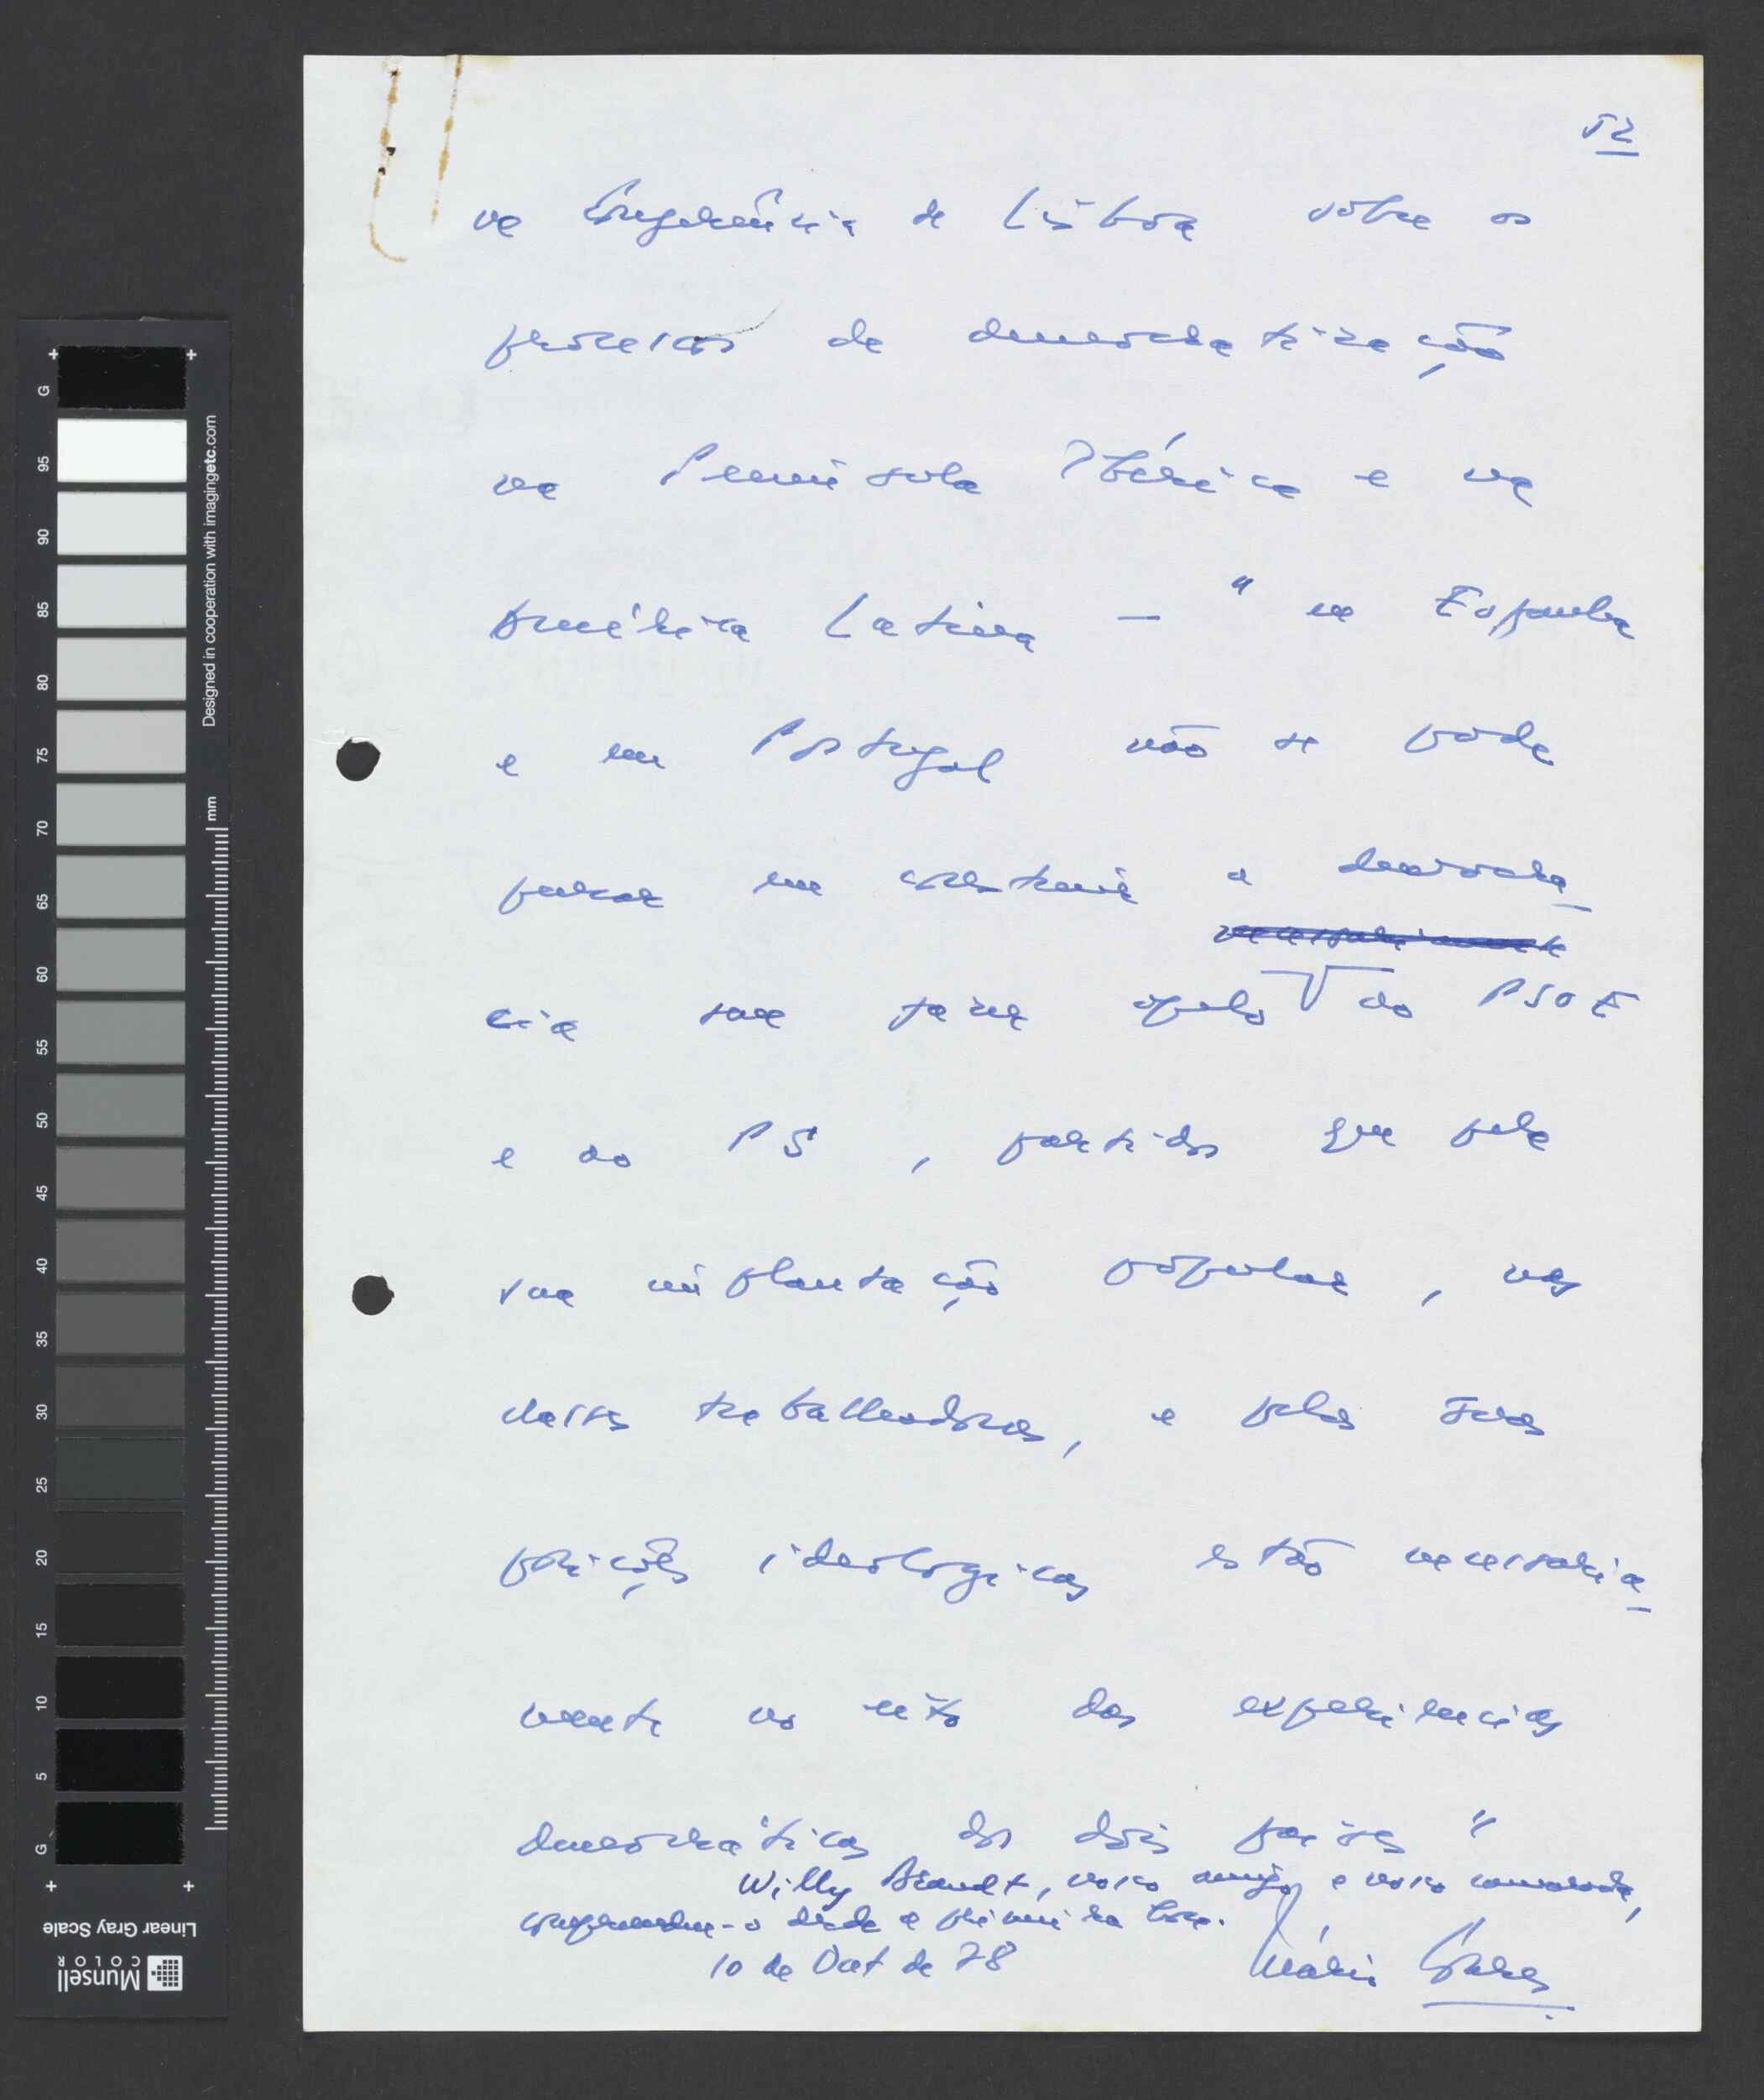 52
na Conferência de Lisboa sobre os
processos de democratização
na Península Ibérica e na
América Latina — "na Espanha
e em Portugal não se pode
pensar em construir a democra
necessariamente
cia sem fazer apelo ao PSOE
e ao PS, partidos que pela
sua implantação popular, nas
classes trabalhadoras, e pelas suas
posições ideologicas estão necessaria
mente no eixo das experiencias
democráticas dos dois paises"
Willy Brandt, nosso amigo e nosso camarada,
compreendeu-o desde a primeira hora.
10 de Out de 78 Mário Soares
G 95 90 85 80 75 70 65 60 55 50 45 40 35 30 25 20 15 10 5 G
mm
Designed in cooperation with imagingetc.com
Linear Gray Scale
Munsell
COLOR